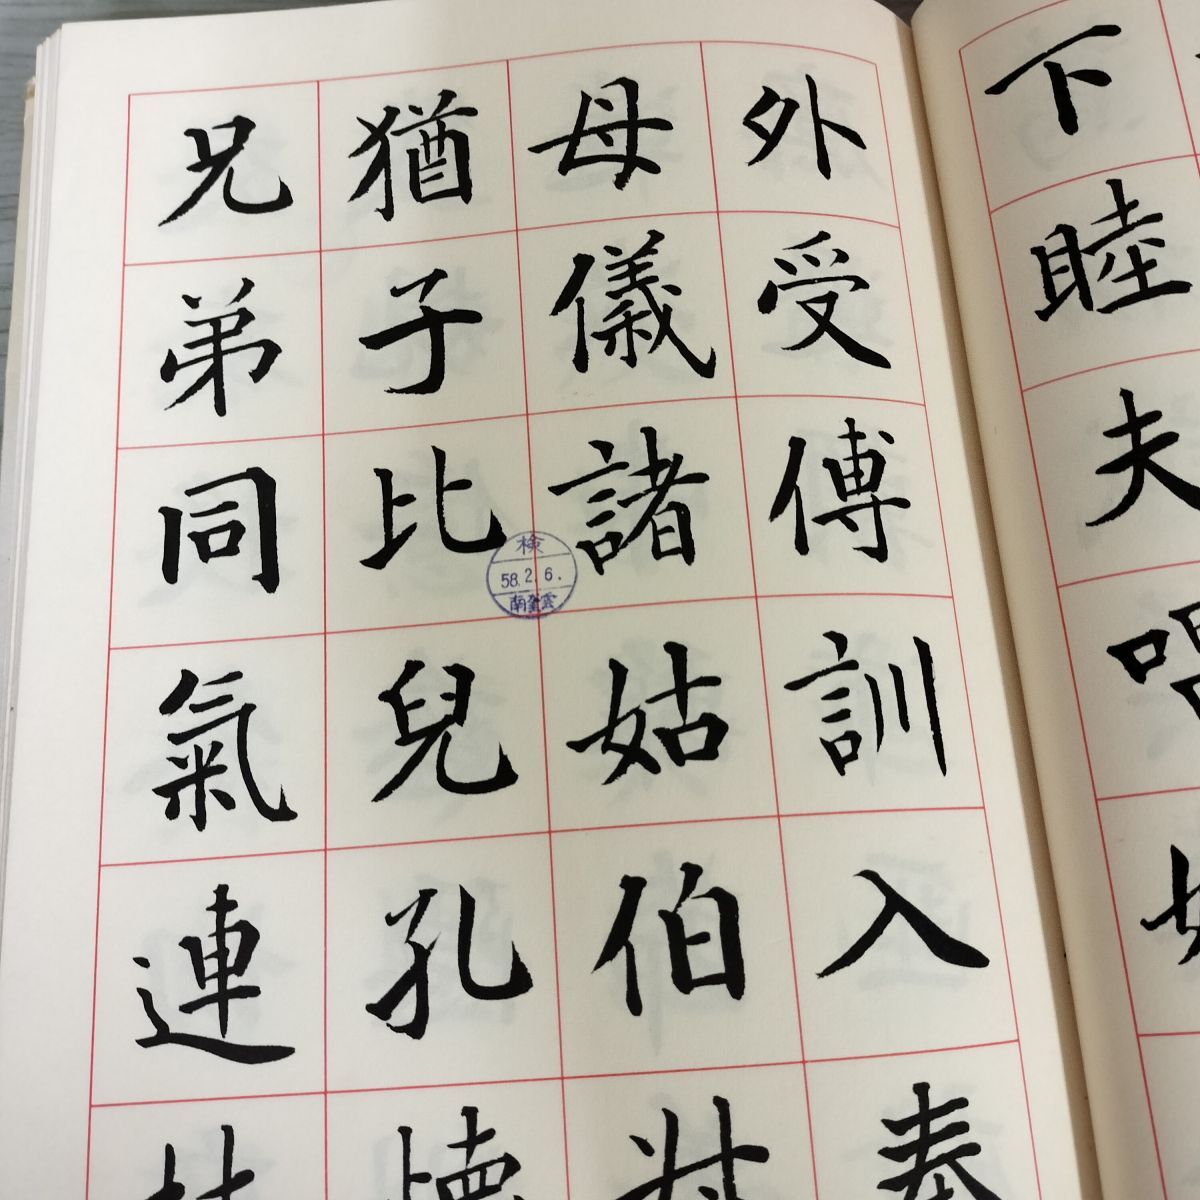 下睦夫唱婦
外受傅訓入奉
母儀諸姑伯叔
猶子比兒孔懷
兄弟同氣連枝
検
58.2.6.